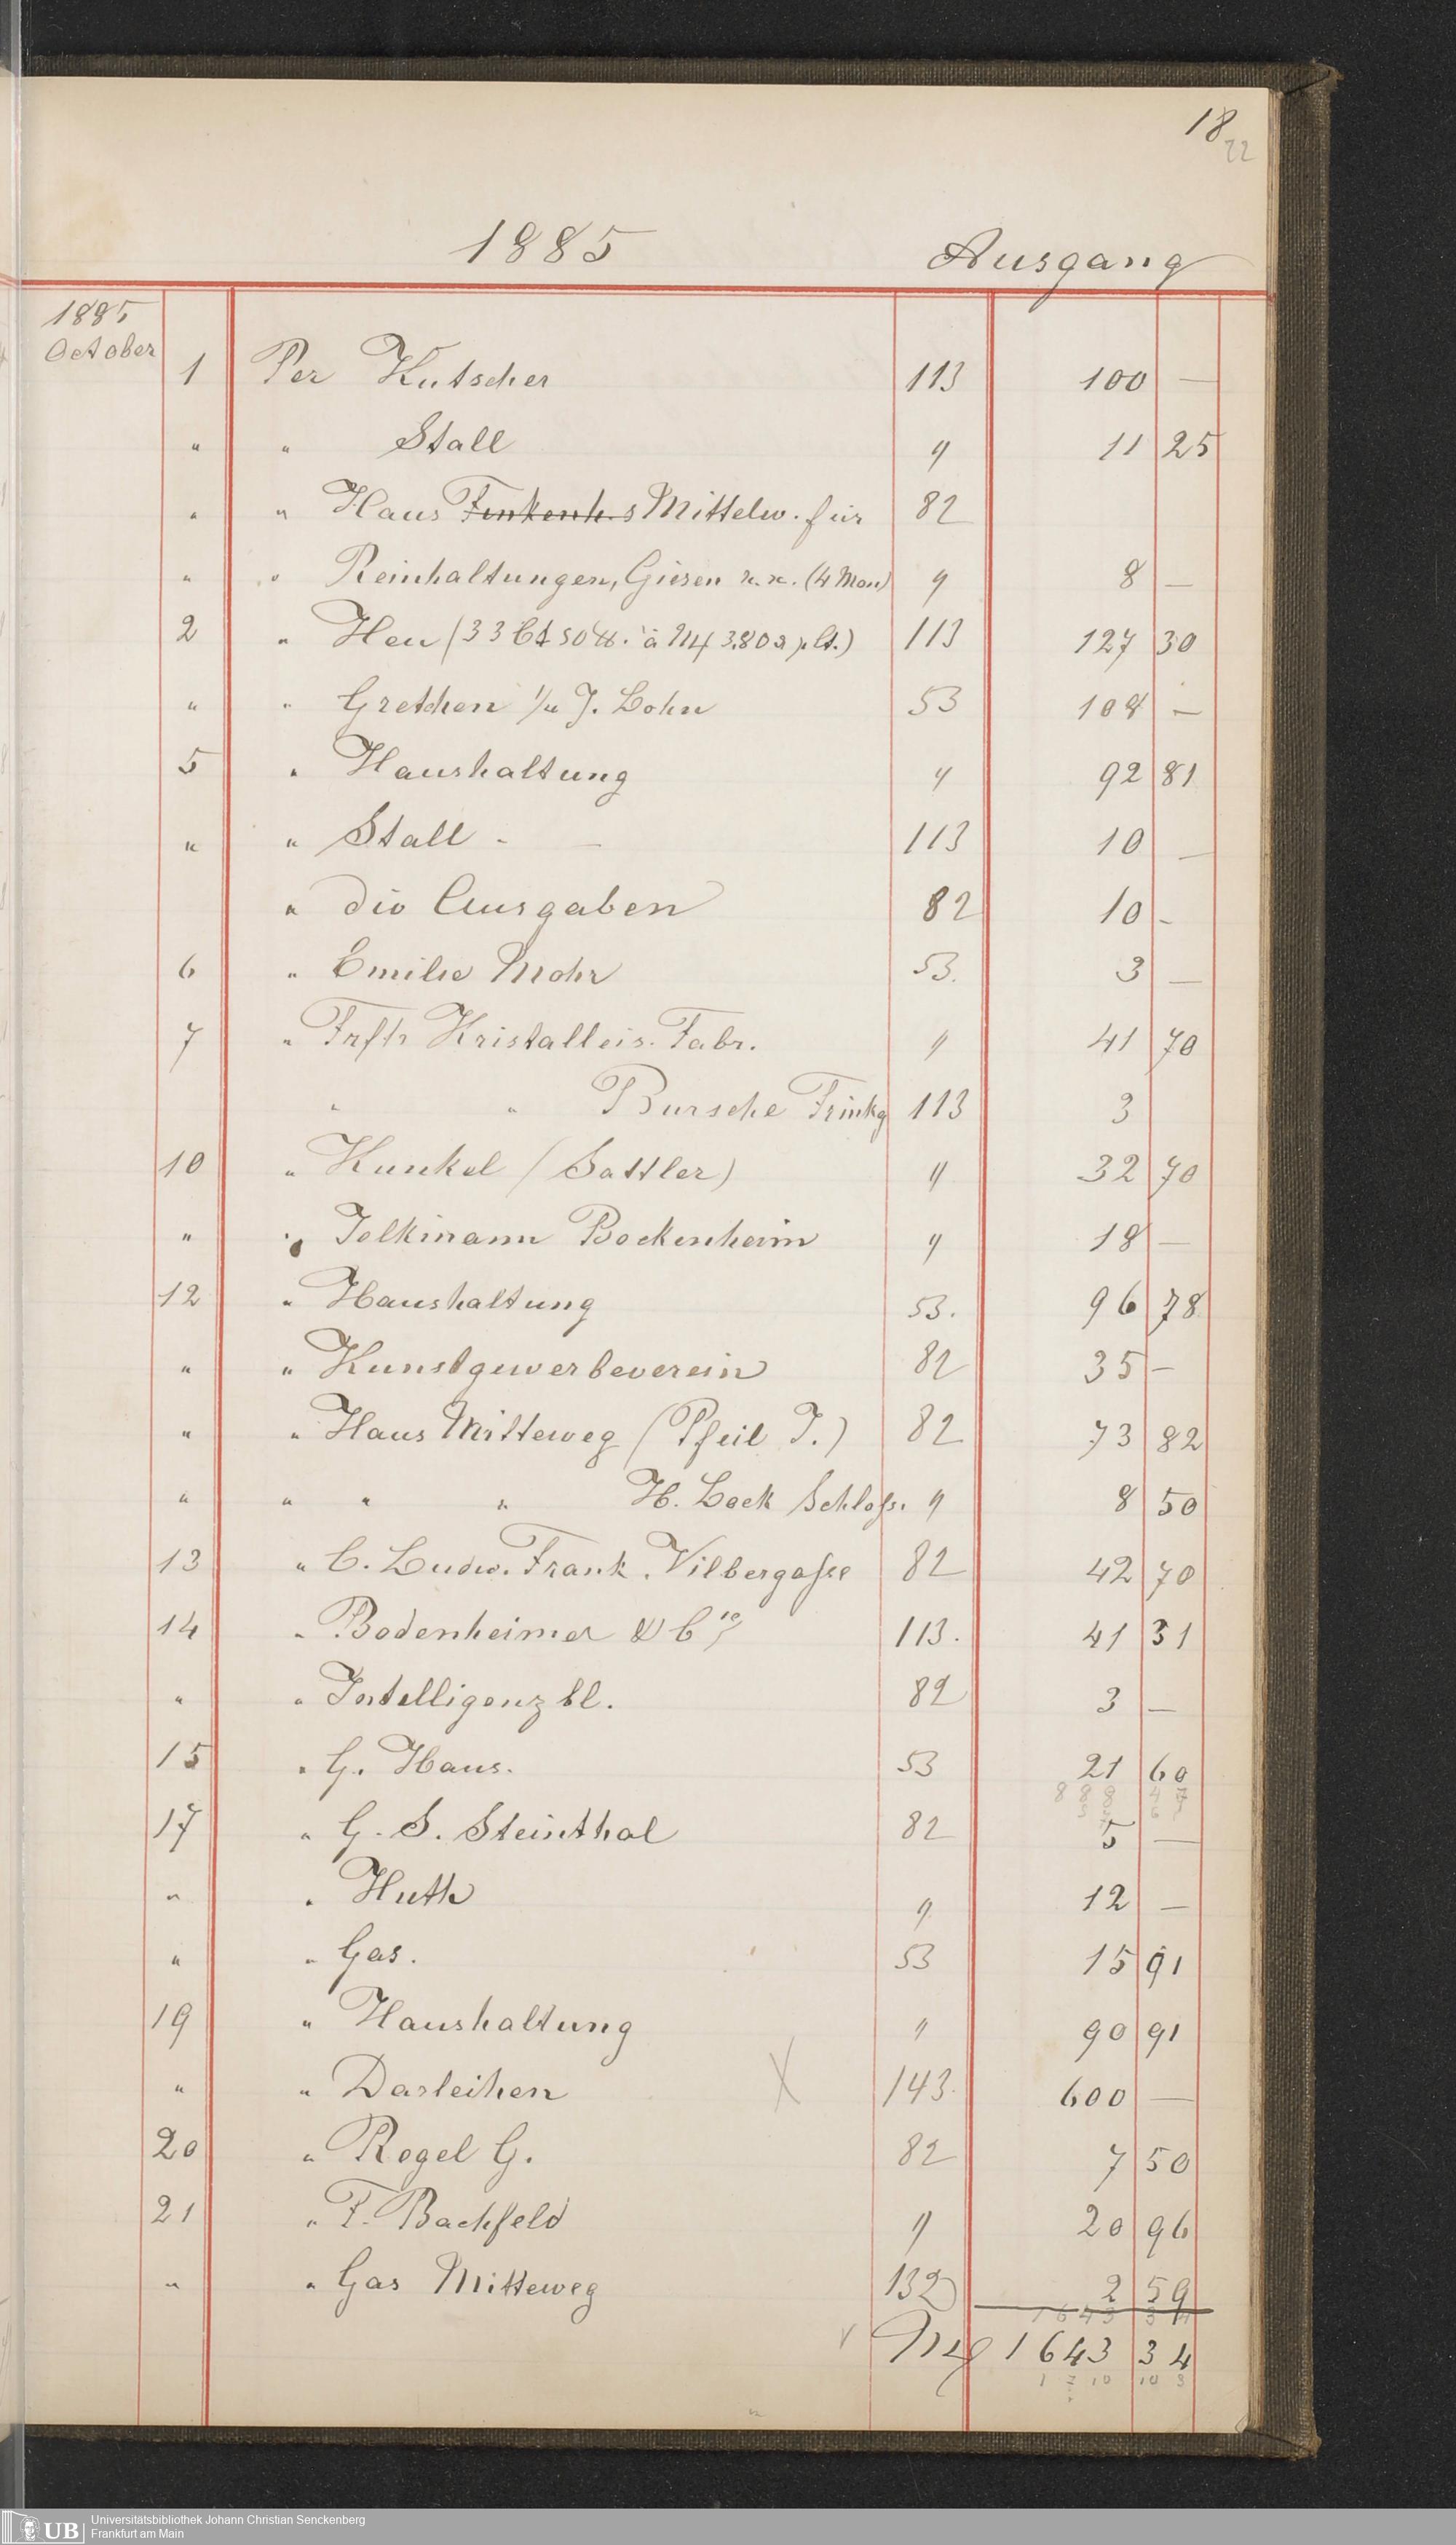 18
22
1885 Ausgang
1885
October
1 Per Kutscher 113 100 —
" " Stall " 11 25
" " Haus Finkenh.s Mittelw. für 82
" " Reinhaltungen, Giesen u.s. (4 Mon) " 8 —
2 " Heu (33 Ct 50 ℔. à M 3.80 p. Ct.) 113 127 30
" " Gretchen 1/4 J. Lohn 53 108 —
5 " Haushaltung " 92 81
" " Stall - — 113 10 —
" div Ausgaben 82 10 -
6 " Emilie Mohr 53. 3 —
7 " Frftr Kristalleis. Fabr. " 41 70
" " Bursche Trinkg 113 3
10 " Kunkel (Sattler) " 32 70
" " Bockenheim " 18 —
12 " Haushaltung 53. 96 78
" " Kunstgewerbeverein 82 35 —
" " Haus Mitteweg (Pfeil J.) 82 73 82
" " " " H. Lock Schloss. " 8 50
13 " C. Ludw. Frank. Vilbergasse 82 42 70
14 " Bodenheimer & Cie 113. 41 31
" " Intelligenzbl. 82 3 —
15 " G. Haus. 53 21 60
888 47
17 " G. S. Steinthal 82 5 —
" " Huth " 12 —
" " Gas. 53 15 91
19 " Haushaltung " 90 91
" " Darleihen X 143. 600 —
20 " Rogel G. 82 7 50
21 " F. Bachfeld " 20 96
" " Gas Mitteweg 132 2 59
1643 34
M 1643 34
1 2 10 10 3
UB Universitätsbibliothek Johann Christian Senckenberg
Frankfurt am Main